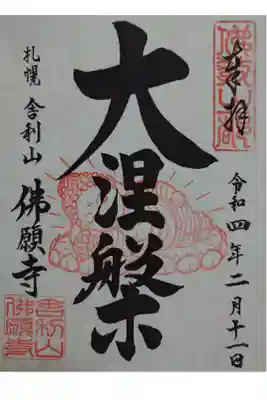 奉拝
令和四年二月十一日
大涅槃
札幌 舎利山
佛願寺
舎利山
佛願寺